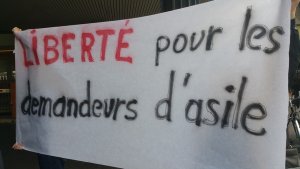 LIBERTÉ pour les
demandeurs d'asile